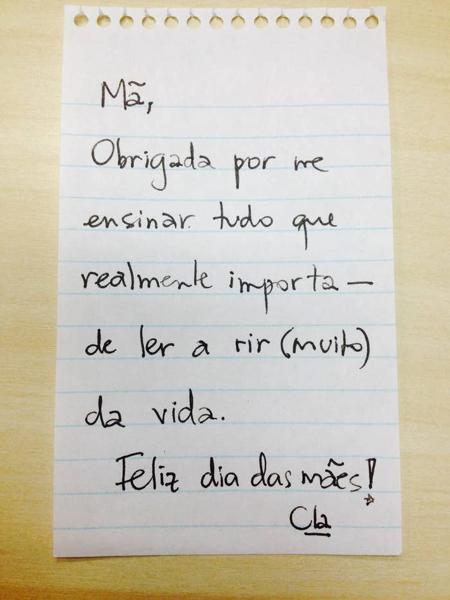 Mã,
Obrigada por me
ensinar tudo que
realmente importa —
de ler a rir (muito)
da vida.
Feliz dia das mães!
Cla